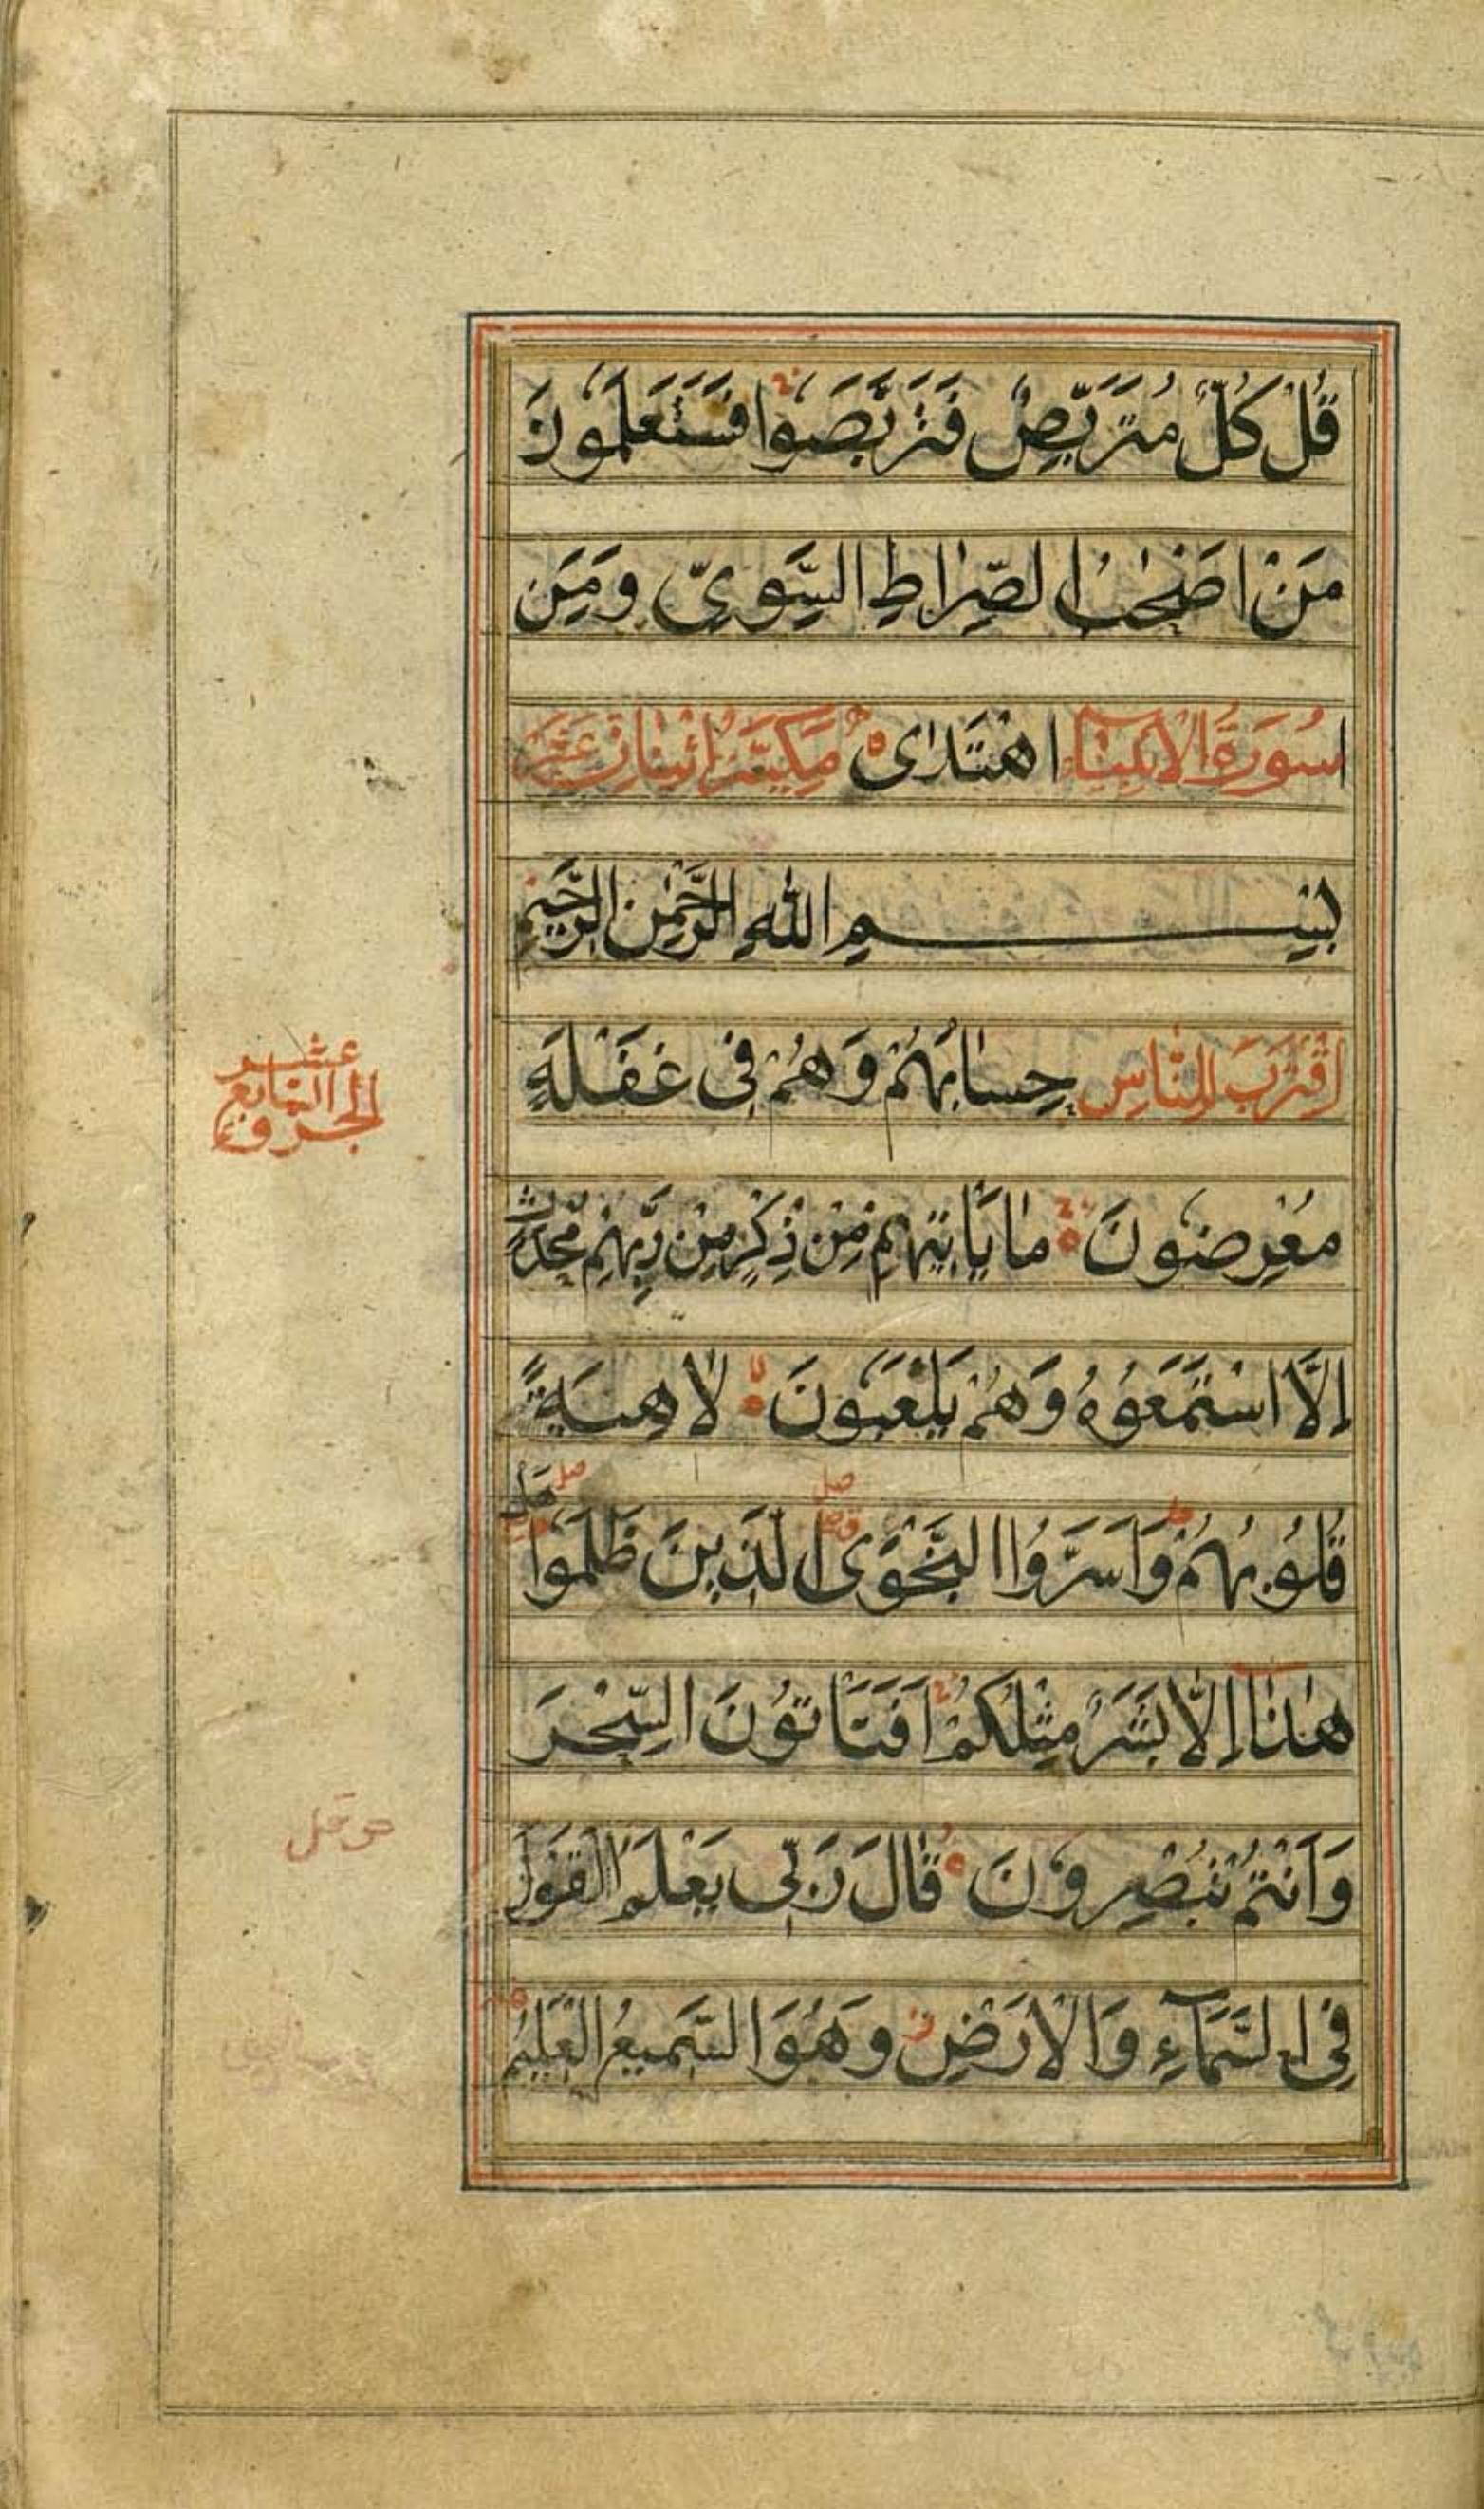 قُلْ كُلٌّ مُتَرَبِّصٌ فَتَرَبَّصُوا فَسَتَعْلَمُونَ
مَنْ اَصْحٰبُ الصِّرَاطِ السَّوِيِّ وَمَنِ
سُورَةُ الْاَنْبِيَاءِ اهْتَدٰى مَكِيَّةٌ اثْنَانِ عَشَرَ
بِسْمِ اللّٰهِ الرَّحْمٰنِ الرَّحِيْمِ
اِقْتَرَبَ لِلنَّاسِ حِسَابُهُمْ وَهُمْ فِى غَفْلَةٍ
عشر
السابع
الجزو
مُعْرِضُونَ مَا يَاْتِيْهِمْ مِنْ ذِكْرٍ مِنْ رَبِّهِمْ مُحْدَثٍ
اِلَّا اسْتَمَعُوْهُ وَهُمْ يَلْعَبُوْنَ لَاهِيَةً
قُلُوْبُهُمْ وَاَسَرُّوا النَّجْوَى الَّذِيْنَ ظَلَمُوا
هٰذَا اِلَّا بَشَرٌ مِثْلُكُمْ اَفَتَاْتُوْنَ السِّحْرَ
وَاَنْتُمْ تُبْصِرُوْنَ قَالَ رَبِّى يَعْلَمُ الْقَوْلَ
فِى السَّمَآءِ وَالْاَرْضِ وَهُوَ السَّمِيْعُ الْعَلِيْمُ